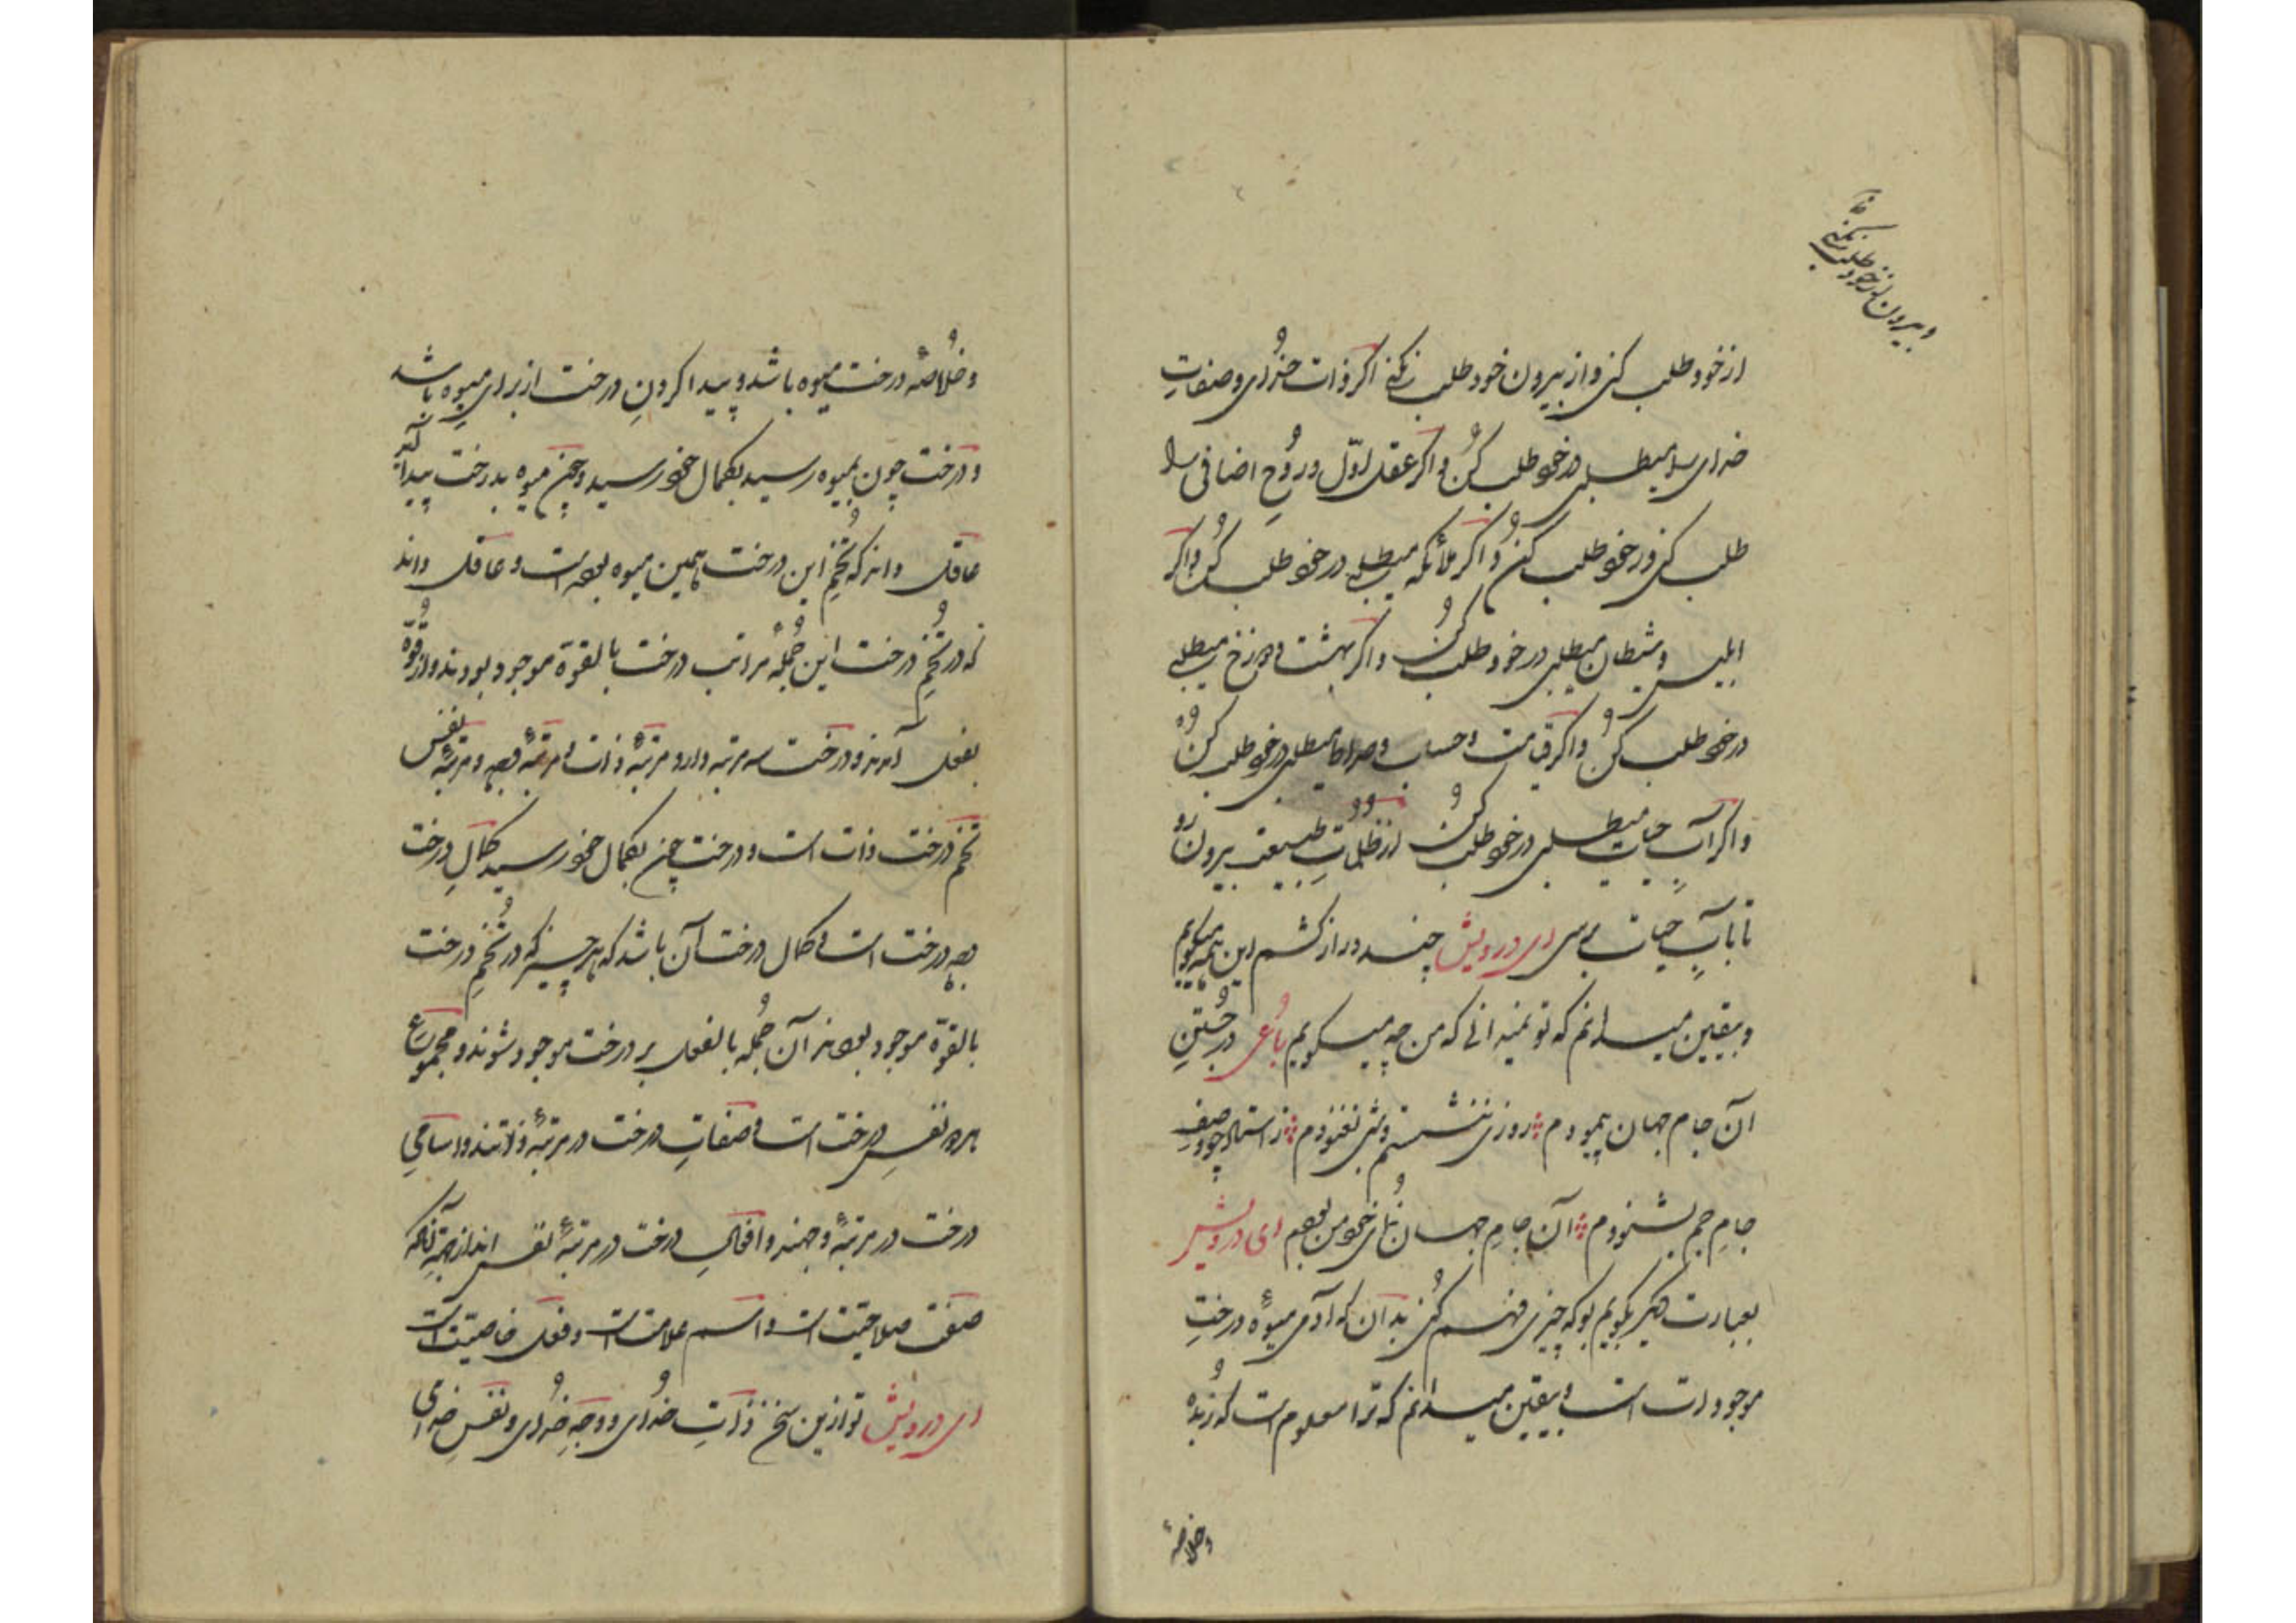 وبیرون از خود طلب نکنی
از خود طلب کنی و از بیرون خود طلب نکنی اکر ذات خدای و صفاتِ
خدای را میطلبی در خود طلب کُن و اکر عقل اوّل و روُحِ اضافی را
طلب کنی در خود طلب کنُ و اکر ملائکه میطلبی در خود طلب کُن و اکر
ابلیس و شیطان میطلبی در خود طلب کنُ و اکر بهشت و دوزخ میطلبی
در خود طلب کُن و اکر قیامت و حساب و صراط میطلبی در خود طلب کنُ
و اکر آبِ حیات میطلبی در خود طلب کنُ از ظلُماتِ طبیعت بیرون رَو
تا بآبِ حیات برسی ای درویش چند دراز کشم این همه میکویم
و بیقین میدانم که تو نمیدانی که من چه میکویم رباعی در جُستنِ
آن جام جهان پیمودم روزی ننشستم و شبی نغنودم ز استاد چو وصفِ
جامِ جم بشنودم آن جامِ جهان نُمای خود من بودم ای درویش
بعبارت دیکر بکویم بو که چیزی فهم کُنی بدان که آدمی میوهٔ درختِ
موجودات است و بیقین میدانم که ترا معلوم است که زُبده
وخلاصهٔ
و خُلاصهٔ درخت میوه باشد و پیدا کردنِ درخت از برای میوه باشد
و درخت چون بمیوه رسید بکمال خود رسید و چون میوه بدرخت پیدا آید
عاقل داند که تُخمِ این درخت همین میوه بوده است و عاقل داند
که در تُخمِ درخت این جُملهٔ مراتب درخت بالقوّة موجود بودند و از قُوّه
بفعل آمدند و درخت سه مرتبه دارد مرتبهٔ ذات و مرتبهٔ وجه و مرتبهٔ نفس
تخم درخت ذات است و درخت چون بکمال خود رسید کمالِ درخت
وجه درخت است و کمال درخت آن باشد که هر چیز که در تُخمِ درخت
بالقوّة موجود بودند آن جُمله بالفعل بر درخت موجود شوند و مجموع
هر دو نفسِ درخت است و صفاتِ درخت در مرتبهٔ ذاتند و اسامیِ
درخت در مرتبهٔ وجهند و افعالِ درخت در مرتبهٔ نفس اند از جهتِ آنکه
صفت صلاحیّت است و اسم علامت است و فعل خاصیّت است
ای درویش تو ازین سخن ذاتِ خدُای و وجهِ خُدای و نفسِ خدای